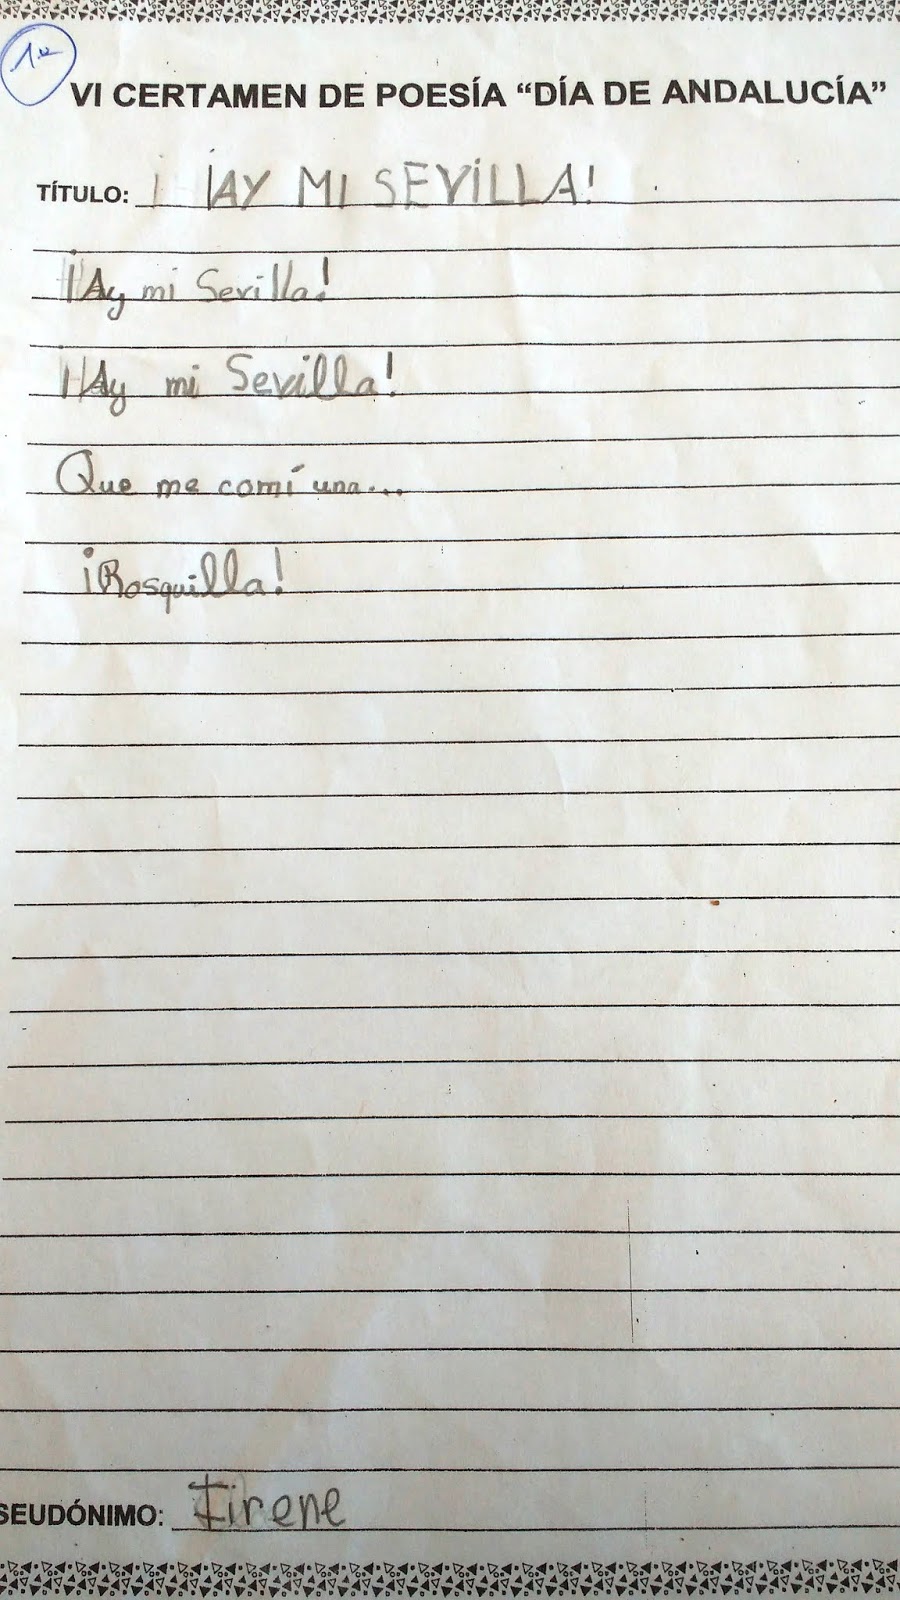 1º
VI CERTAMEN DE POESÍA “DÍA DE ANDALUCÍA”
TÍTULO: ¡AY MI SEVILLA!
¡Ay mi Sevilla!
¡Ay mi Sevilla!
Que me comí una...
¡Rosquilla!
SEUDÓNIMO: Firene